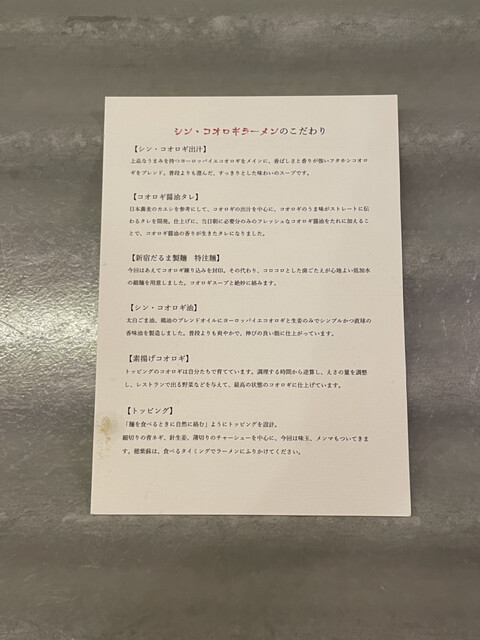 シン・コオロギラーメンのこだわり
【シン・コオロギ出汁】
上品なうまみを持つヨーロッパイエコオロギをメインに、香ばしさと香りが強いフタホシコオロ
ギをブレンド。普段よりも澄んだ、すっきりとした味わいのスープです。
【コオロギ醤油タレ】
日本蕎麦のカエシを参考にして、コオロギの出汁を中心に、コオロギのうま味がストレートに伝
わるタレを開発。仕上げに、当日朝に必要分のみのフレッシュなコオロギ醤油をたれに加えるこ
とで、コオロギ醤油の香りが生きたタレになりました。
【新宿だるま製麺 特注麺】
今回はあえてコオロギ練り込みを封印。その代わり、コロコロとした歯ごたえが心地よい低加水
の細麺を用意しました。コオロギスープと絶妙に絡みます。
【シン・コオロギ油】
太白ごま油、鶏油のブレンドオイルにヨーロッパイエコオロギと生姜のみでシンプルかつ直球の
香味油を製造しました。普段よりも爽やかで、伸びの良い油に仕上がっています。
【素揚げコオロギ】
トッピングのコオロギは自分たちで育てています。調理する時間から逆算し、えさの量を調整
し、レストランで出る野菜などを与えて、最高の状態のコオロギに仕上げています。
【トッピング】
「麺を食べるときに自然に絡む」ようにトッピングを設計。
細切りの青ネギ、針生姜、薄切りのチャーシューを中心に、今回は味玉、メンマもついてきま
す。穂紫蘇は、食べるタイミングでラーメンにふりかけてください。